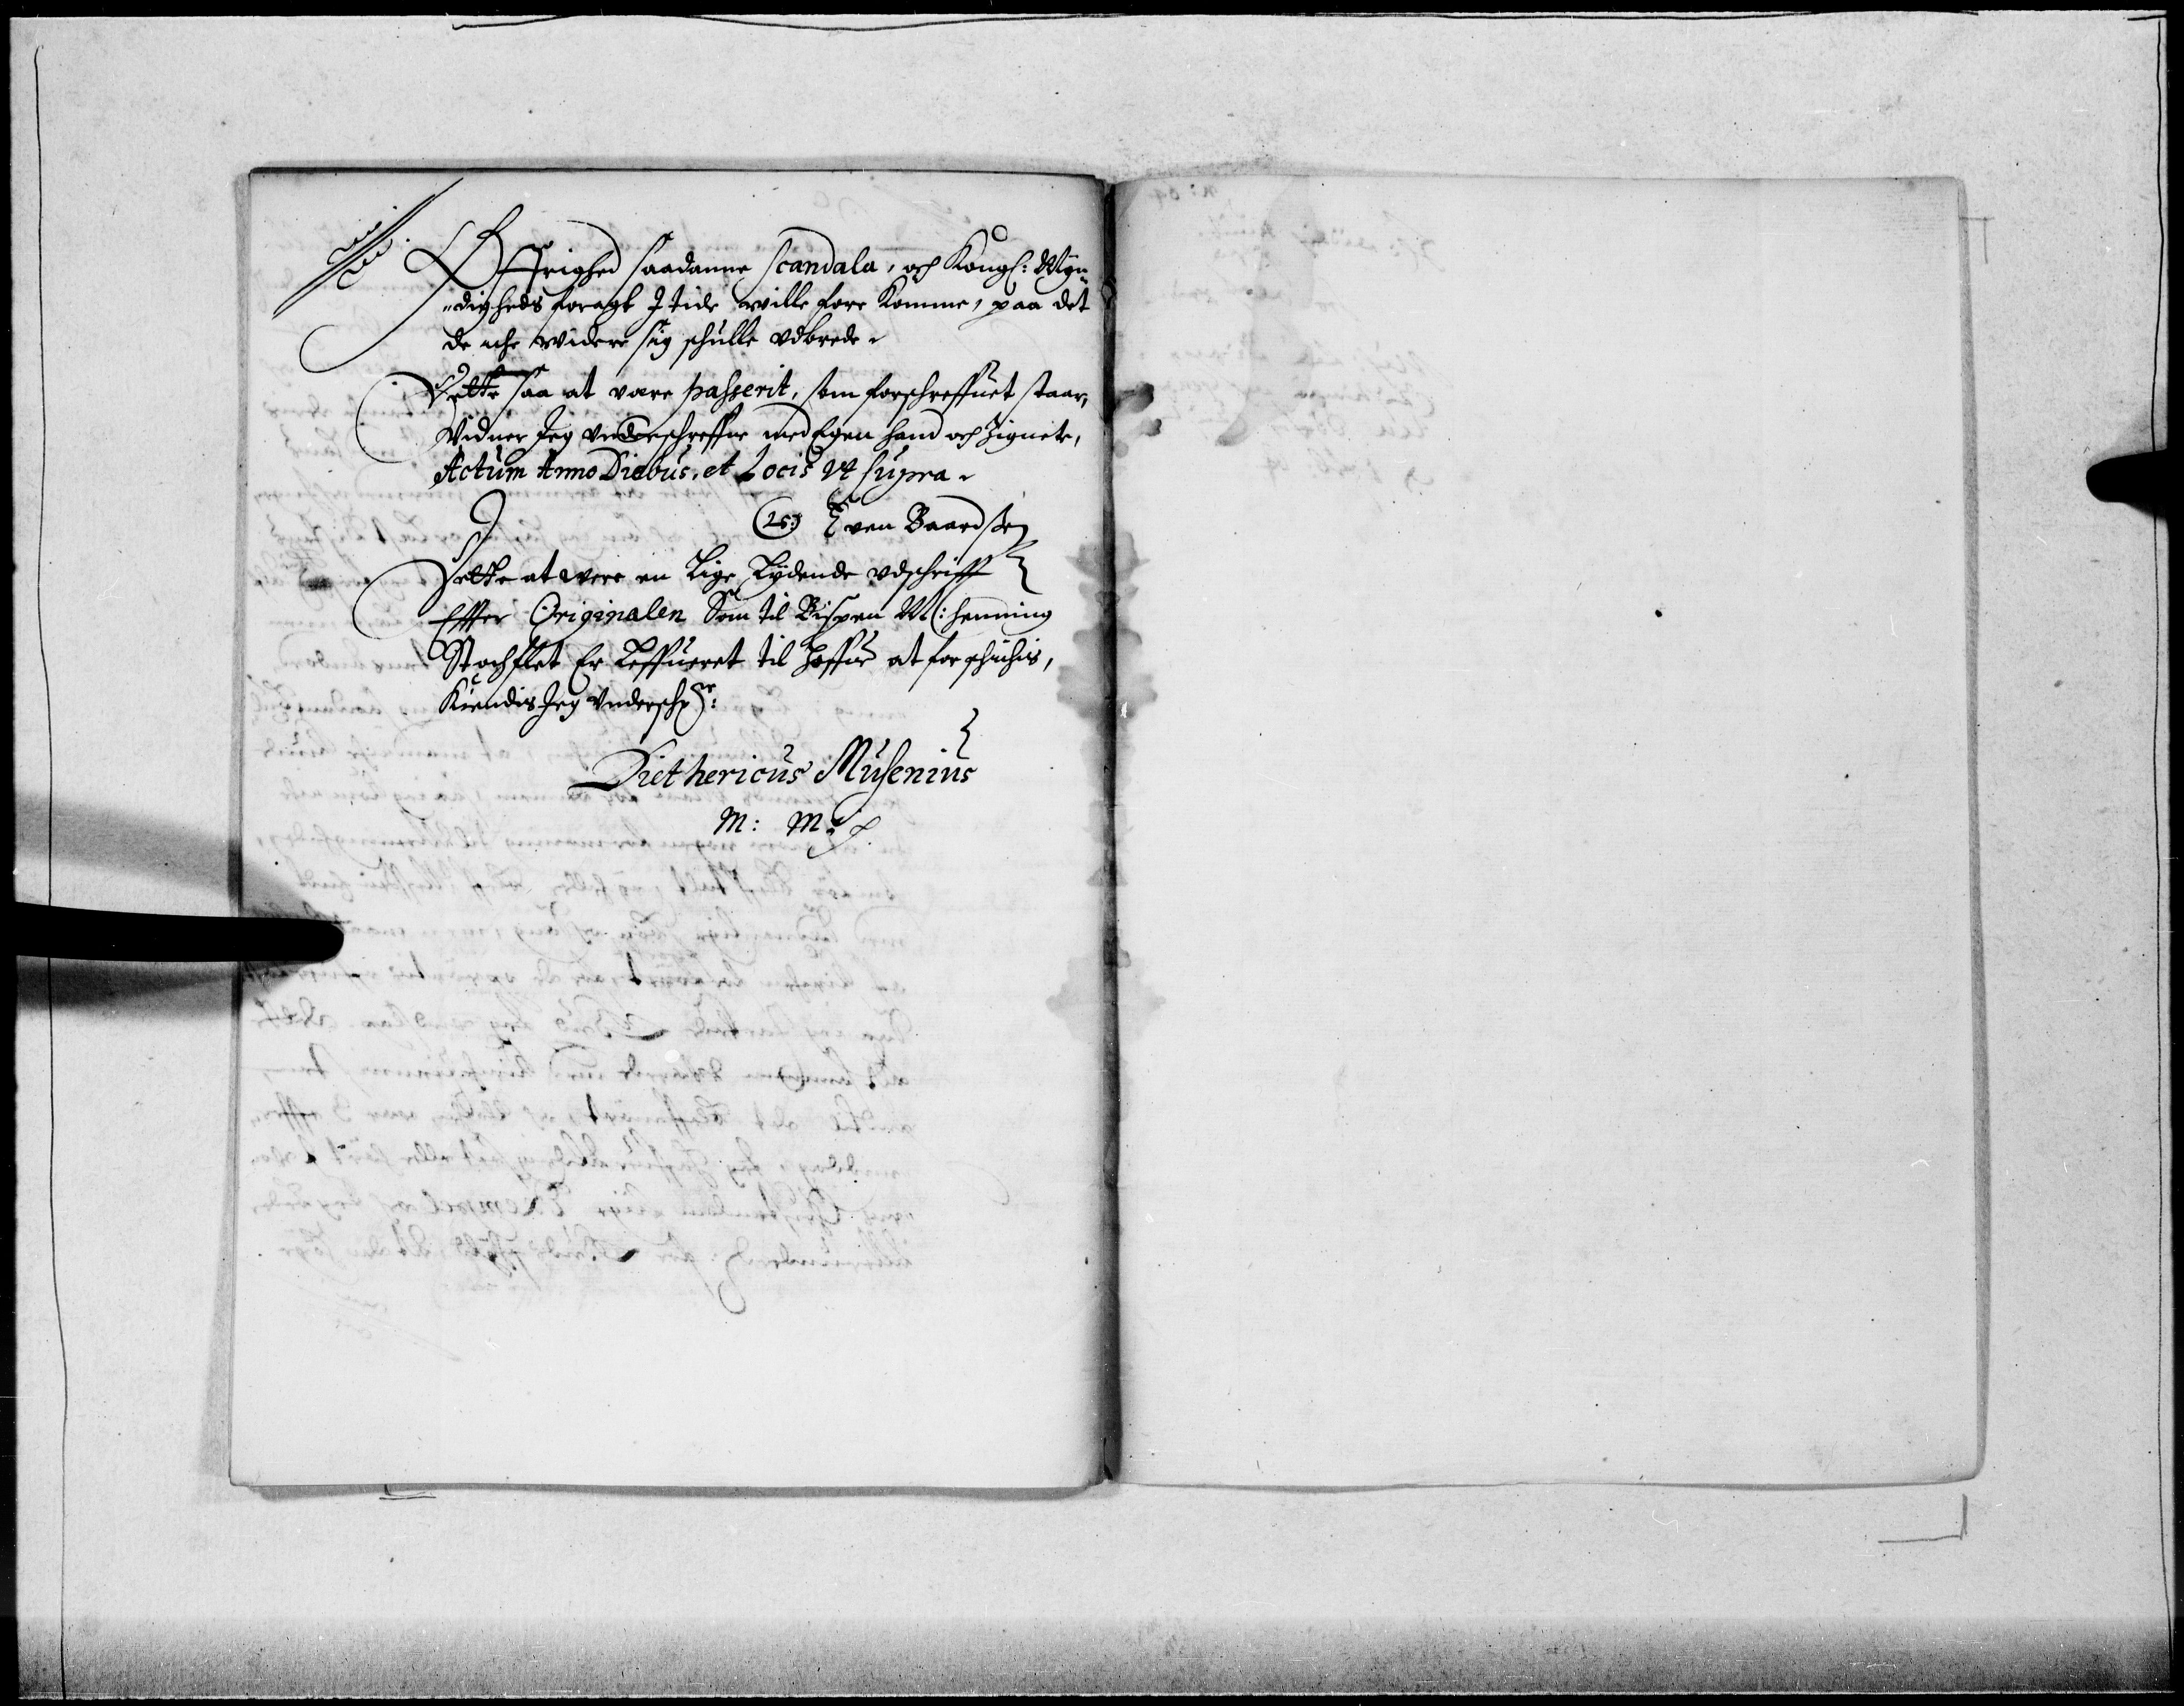 Øffrighed saadanne scandala, och Kongl: Myn„
„digheds foragt J tide wille fore Komme, paa det
de iche widere sig schulle vdbrede.
Dette saa at være passerit, som forschreffuet staar,
Vidner Jeg vnderschreffne med Egen haand och Zignete,
Actum Anno Diebus, et Locis vt supra.
(LS:) Even Baardsen
Dette at were en Lige Lydende vdschrifft
Effter Originalen Som til Bispen M: Henning
Stochflet Er Leffueret til Hoffue at forschichis,
Kiendis Jeg Vndersch:
Diethericus Musenius
M: M: p